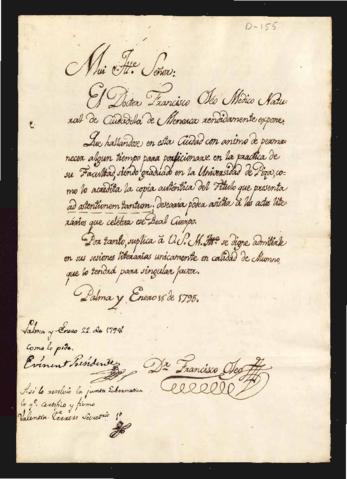 D-155
Mui Itte. Señor:
El Doctor Francisco Oleo Médico Natu-
ral de Ciudadela de Menorca rendidamente expone:
Que hallandose en esta Ciudad con animo de perma-
necer algun tiempo para perfeccionarse en la practica de
su Facultad, siendo graduado en la Universidad de Pisa, co-
mo lo acredita la copia auténtica del Titulo que presenta
ad ostentionem tantum, desearia poder asistir á los actos lite-
rarios que celebra ese Real Cuerpo.
Por tanto, suplica á V.S.M. Itte. se digne admitirle
en sus sesiones literarias unicamente en calidad de Alumno
que lo tendrá para singular favor.
Palma y Enero 15 de 1795.
Palma y Enero 22 de
como lo pide.
Evinent Presidente
Dr. Francisco Oleo
Asi lo resolvió la junta Gubernativa
lo qe. certifico y firmo
Valentin Terrers Secretario